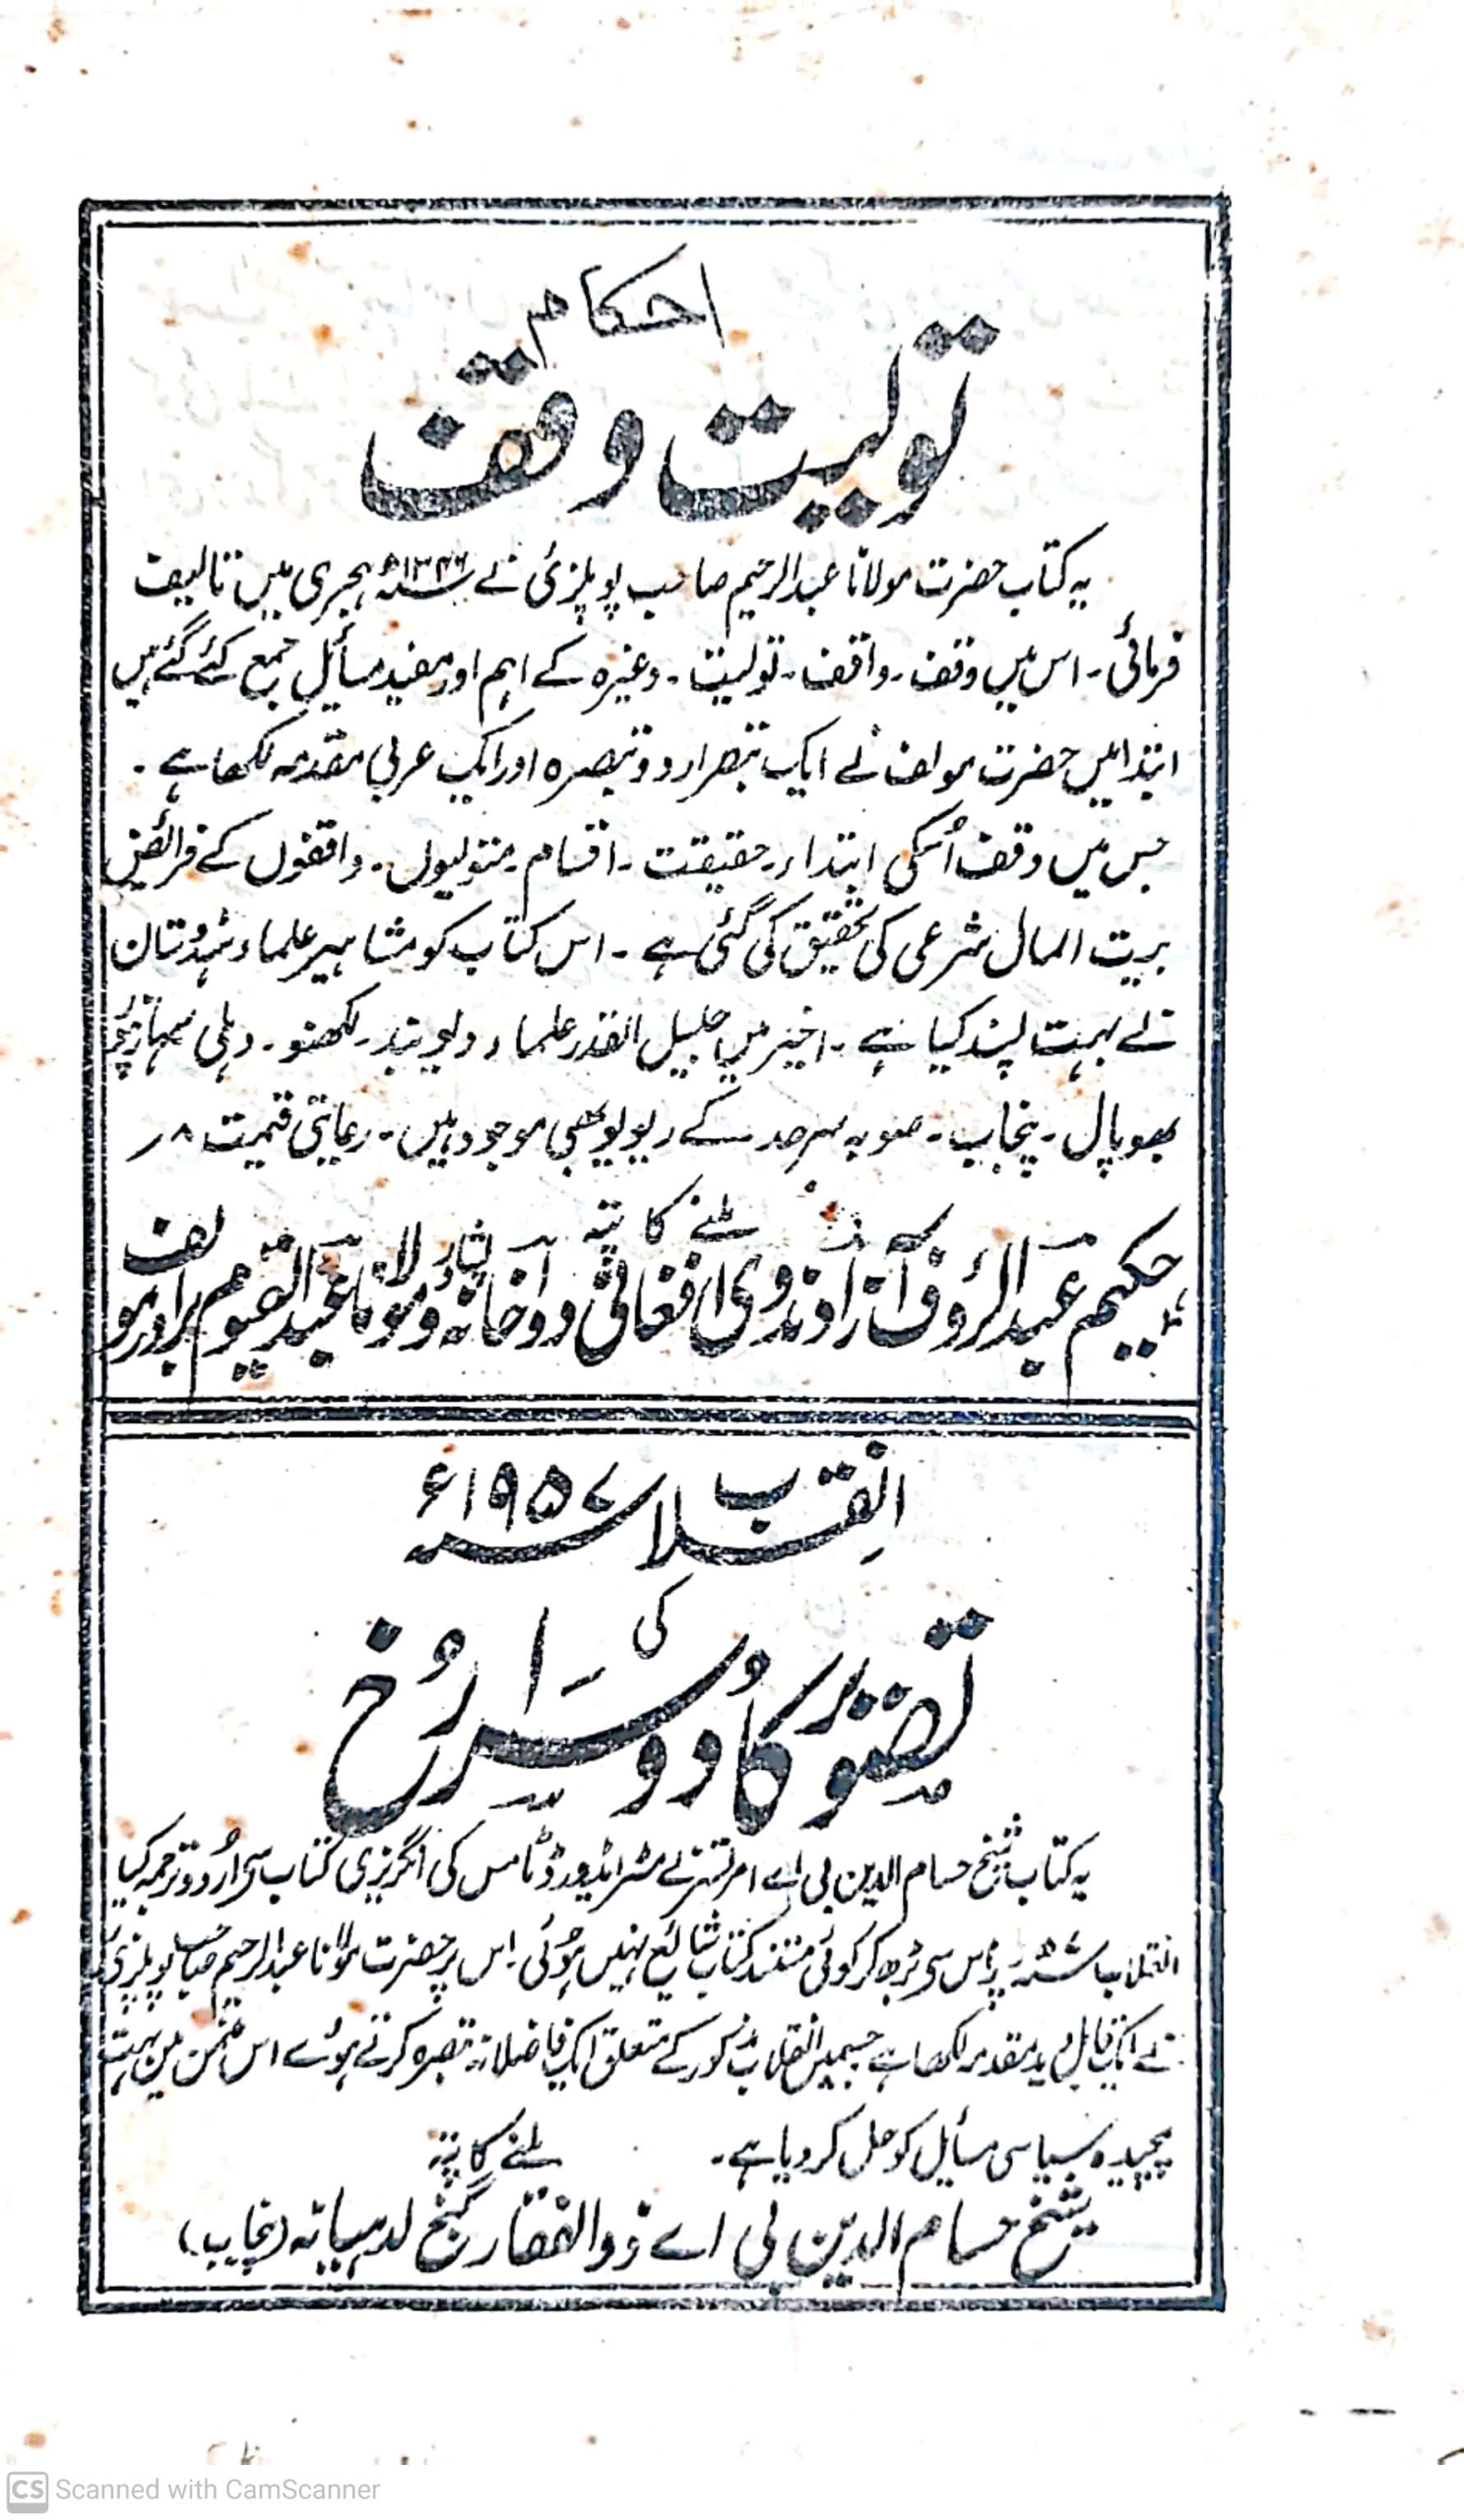 احکام
تولیت وقف
یہ کتاب حضرت مولانا عبدالرحیم صاحب پوپلزئی نے ۱۳۴۶ھ ہجری میں تالیف
فرمائی۔ اس میں وقف۔ واقف۔ تولیت۔ وغیرہ کے اہم اور مفید مسائل جمع کئے گئے ہیں
ابتدا میں حضرت مولف نے ایک تبصرہ اردو تبصرہ اور ایک عربی مقدمہ لکھا ہے۔
جس میں وقف اُسکی ابتداء۔ حقیقت۔ اقسام۔ متولیوں۔ واقفوں کے فرائض
بیت المال شرعی کی تحقیق کی گئی ہے۔ اس کتاب کو مشاہیر علماء ہندوستان
نے بہت پسند کیا ہے۔ اخیر میں جلیل القدر علماء دیوبند۔ لکھنو۔ دہلی سہارنپور
بھوپال۔ پنجاب۔ صوبہ سرحد کے ریویو بھی موجود ہیں۔ رعایتی قیمت ۸ر
ملنے کا پتہ
حکیم عبدالرؤف آزاد ندوی افغانی دواخانہ پشاور و مولانا عبدالقیوم برادر مولف
انقلاب ۱۹۵۷ء
کی
تصویر کا دوسرا رُخ
یہ کتاب شیخ حسام الدین بی اے امرتسر نے مسٹر ایڈورڈ ٹامس کی انگریزی کتاب سی اُردو ترجمہ کیا
انقلاب ۵۷ء پر اس سی بڑھ کر کوئی مستند کتاب شائع نہیں ہوئی۔ اس پر حضرت مولانا عبدالرحیم صاحب پوپلزئی
نے ایک قابل دید مقدمہ لکھا ہے جسمیں انقلاب مذکور کے متعلق ایک فاضلانہ تبصرہ کرتے ہوئے اس ضمن میں بہت
پیچیدہ سیاسی مسائل کو حل کر دیا ہے۔ ملنے کا پتہ
شیخ حسام الدین بی اے ذوالفقار گنج لدہیانہ (پنجاب)
CS Scanned with CamScanner